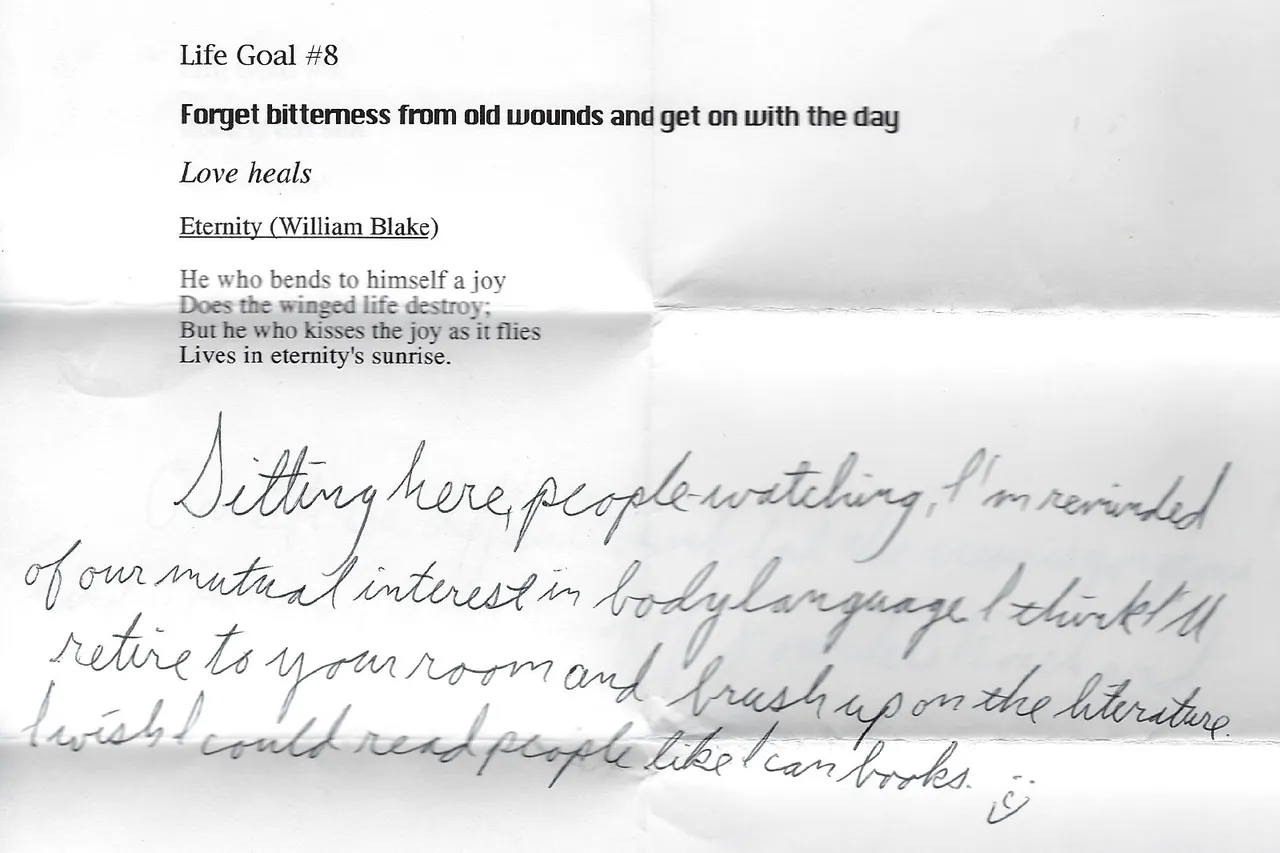 Life Goal #8
Forget bitterness from old wounds and get on with the day
Love heals
Eternity (William Blake)
He who bends to himself a joy
Does the winged life destroy;
But he who kisses the joy as it flies
Lives in eternity's sunrise.
Sitting here, people-watching, I'm reminded
of our mutual interest in body language. I think I'll
retire to your room and brush up on the literature.
I wish I could read people like I can books. :)